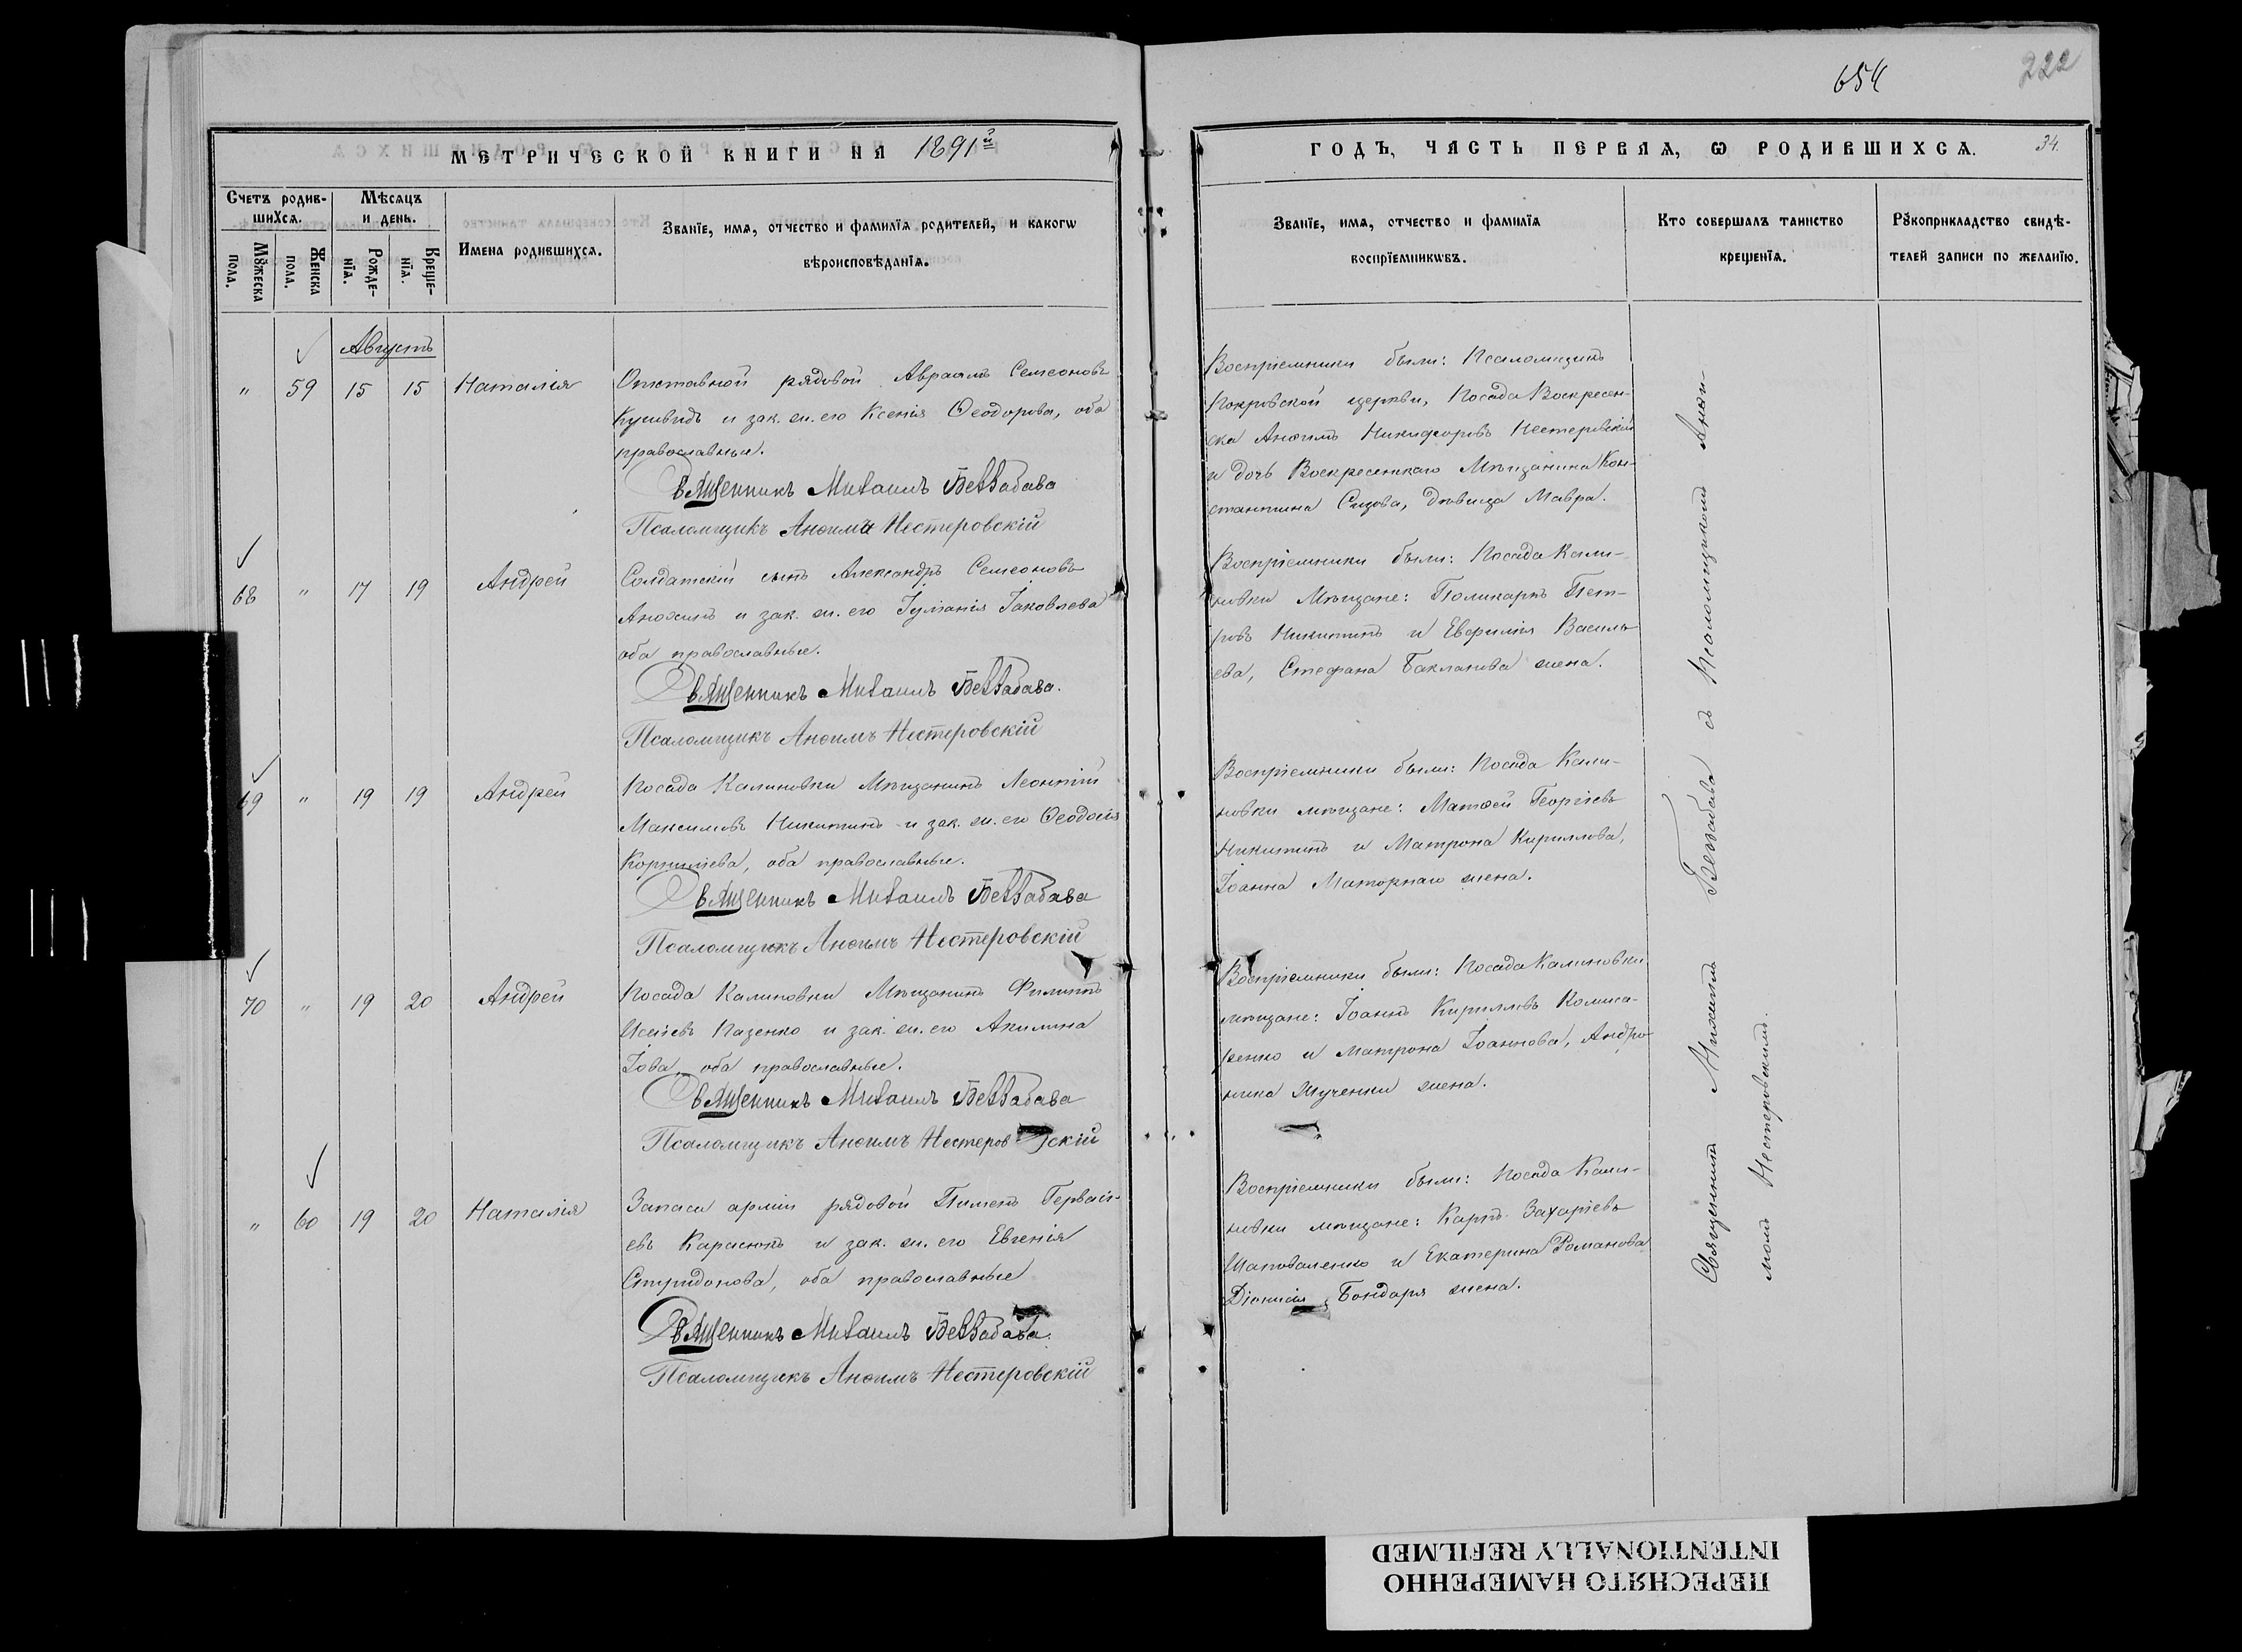 654
222
МЕТРИЧЕСКОЙ КНИГИ НА 1891й
ГОДЪ, ЧАСТЬ ПЕРВАЯ, Ѡ РОДИВШИХСѦ.
34.
Счетъ родив-
шихсѧ.
Мꙋжеска
пола.
Женска
пола.
Мѣсѧцъ
и день.
Рожде-
нїѧ.
Креще-
нїѧ.
Имена родившихсѧ.
Званїе, имѧ, отчество и фамилїѧ родителей, и какогѡ
вѣроисповѣданїѧ.
Званїе, имѧ, отчество и фамилїѧ
воспрїемникѡвъ.
Кто совершалъ таинство
крещенїѧ.
Рꙋкоприкладство свидѣ-
телей записи по желанїю.
Августъ
" 59 15 15 Наталія
Отставной рядовой Авраамъ Семеоновъ
и зак. ж. его Ксенія Ѳеодорова, оба
православные.
Священникъ Михаилъ Беззабава
Псаломщикъ Анѳимъ Нестеровскій
Воспріемники были: Псаломщикъ
Покровской церкви, Посада Воскресен-
ска Анѳимъ Никифоровъ Нестеровскій
и дочь Воскресенскаго Мѣщанина Кон-
стантина Сизова, дѣвица Мавра.
68 " 17 19 Андрей
Солдатскій сынъ Александръ Семеоновъ
Анохинъ и зак. ж. его Іуліанія Іаковлева
оба православные.
Священникъ Михаилъ Беззабава.
Псаломщикъ Анѳимъ Нестеровскій
Воспріемники были: Посада Кали-
новки Мѣщане: Поликарпъ Пет-
ровъ Никитинъ и Евфимія Василь-
ева, Стефана Бакланова жена.
69 " 19 19 Андрей
Посада Калиновки Мѣщанинъ Леонтій
Максимовъ Никитинъ и зак. ж. его Ѳеодосія
Корниліева, оба православные.
Священникъ Михаилъ Беззабава
Псаломщикъ Анѳимъ Нестеровскій
Воспріемники были: Посада Кали-
новки мѣщане: Матѳей Георгіевъ
Никитинъ и Матрона Кириллова,
Іоанна Маторнаго жена.
70 " 19 20 Андрей
Посада Калиновки Мѣщанинъ Филиппъ
Исаіевъ Пазенко и зак. ж. его Акилина
Іова, оба православные.
Священникъ Михаилъ Беззабава
Псаломщикъ Анѳимъ Нестеровскій
Воспріемники были: Посада Калиновки
мѣщане: Іоаннъ Кирилловъ Комиса-
ренко и Матрона Іоаннова, Андро-
ника жена.
" 60 19 20 Наталія
Запаса арміи рядовой Пименъ Гервасі-
евъ Карасюкъ и зак. ж. его Евгенія
Спиридонова, оба православные
Священникъ Михаилъ Беззабава.
Псаломщикъ Анѳимъ Нестеровскій
Воспріемники были: Посада Кали-
новки мѣщане: Карпъ Захаріевъ
Шаповаленко и Екатерина Романова
Діонисія Бондаря жена.
Священникъ Михаилъ Беззабава съ Псаломщикомъ Анѳи-
момъ Нестеровскимъ.
ПЕРЕСНЯТО НАМЕРЕННО
INTENTIONALLY REFILMED